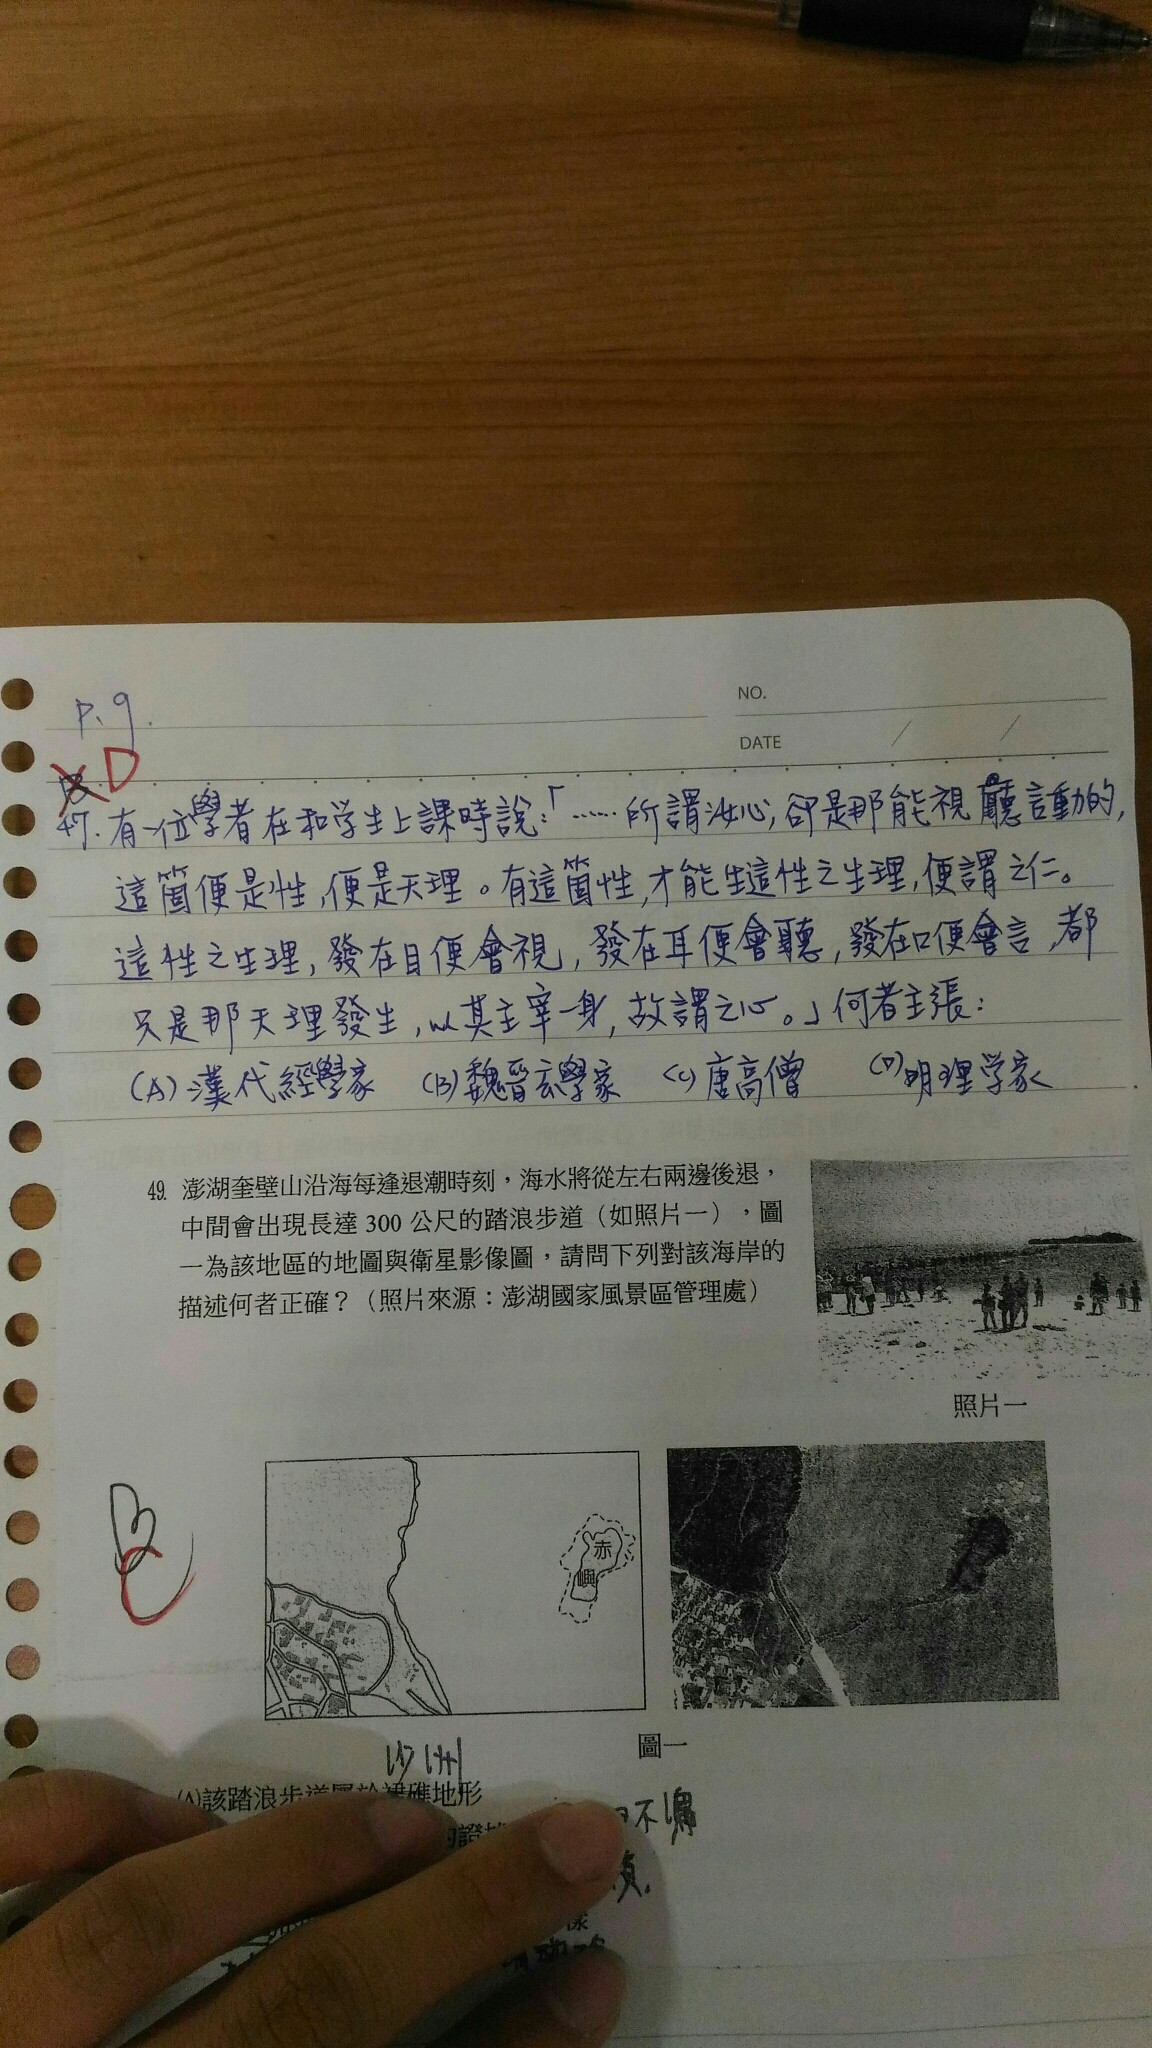 P.9.
NO.
DATE
D
47. 有一位學者在和学生上課時說:「……所謂汝心,卻是那能視聽言動的,
這箇便是性,便是天理。有這箇性,才能生這性之生理,便謂之仁。
這性之生理,發在目便會視,發在耳便會聽,發在口便會言,都
只是那天理發生,以其主宰一身,故謂之心。」何者主張:
(A)漢代經學家 (B)魏晉玄學家 (C)唐高僧 (D)明理学家
49. 澎湖奎壁山沿海每逢退潮時刻，海水將從左右兩邊後退，
中間會出現長達 300 公尺的踏浪步道（如照片一），圖
一為該地區的地圖與衛星影像圖，請問下列對該海岸的
描述何者正確？（照片來源：澎湖國家風景區管理處）
照片一
B
C
赤
嶼
圖一
沙洲
(A)該踏浪步道屬於裙礁地形
不屬
樣